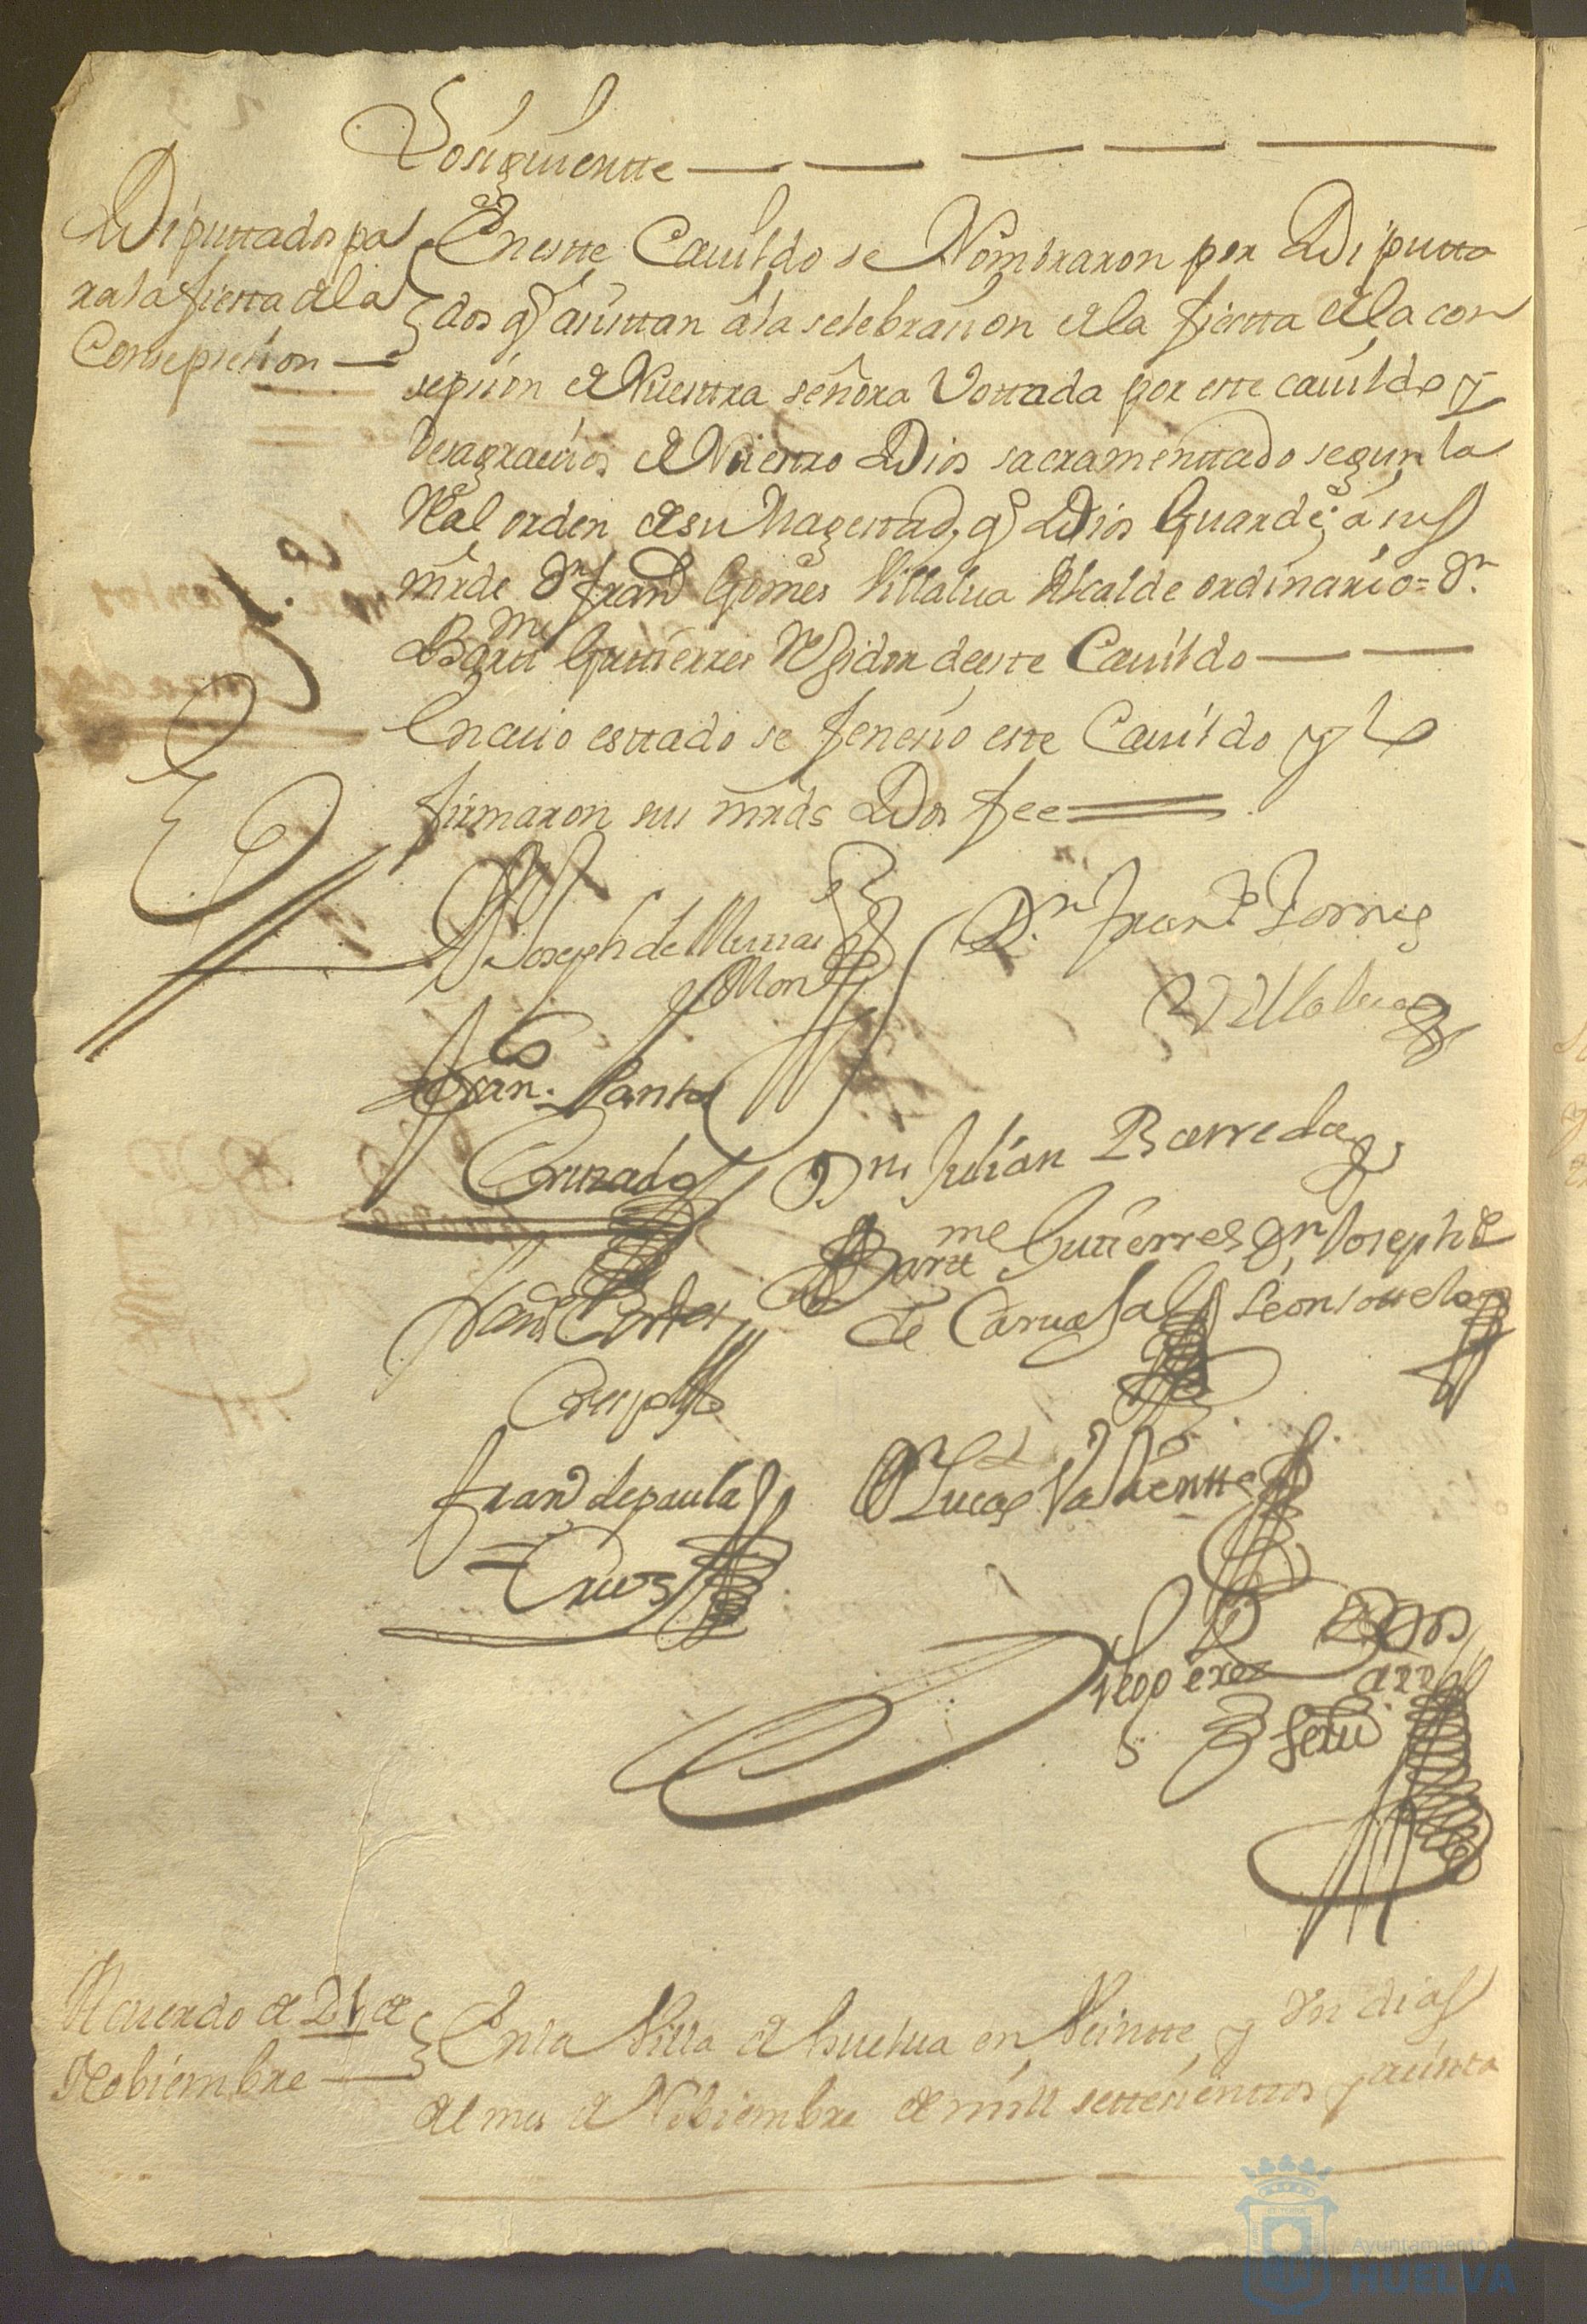 Losiguientte
Diputtados pa
ra la fiestta de la
Consepcion
En estte Cavildo se Nombraron por Diputta
dos q asistan a la selebracion de la fiestta de la con
sepsion de Nuesttra señora Vottada por este cavildo y
desagracios de Nuestro Dios sacramenttado segun la
Real orden de su Magestad, q Dios Guarde, a sus
mrds Dn Franco Gomes Villalua Alcalde ordinario = Dn
Barttme Gutierres Regidor de este Cavildo
En cuio esttado se fenesio este Cavildo y lo
firmaron sus mrds Doi fee
Joseph de
Dn Franco Gomes
Villalua
Fran. Santos
Cruzado
Dn Julian Barreda
Barttme Gutierres
de Caruajal
Dn Joseph de
Leon
Crespo
Franco de paula
Cruz
Dn Lucas Valientte
Acuerdo de 21 de
Nobiembre
En la Villa de huelua en Veintte y dos dias
del mes de Nobiembre de mill settesienttos y
Ayuntamiento
HUELVA